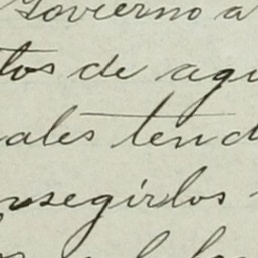 Govierno a
tos de agu
ales tend
nsegirlos